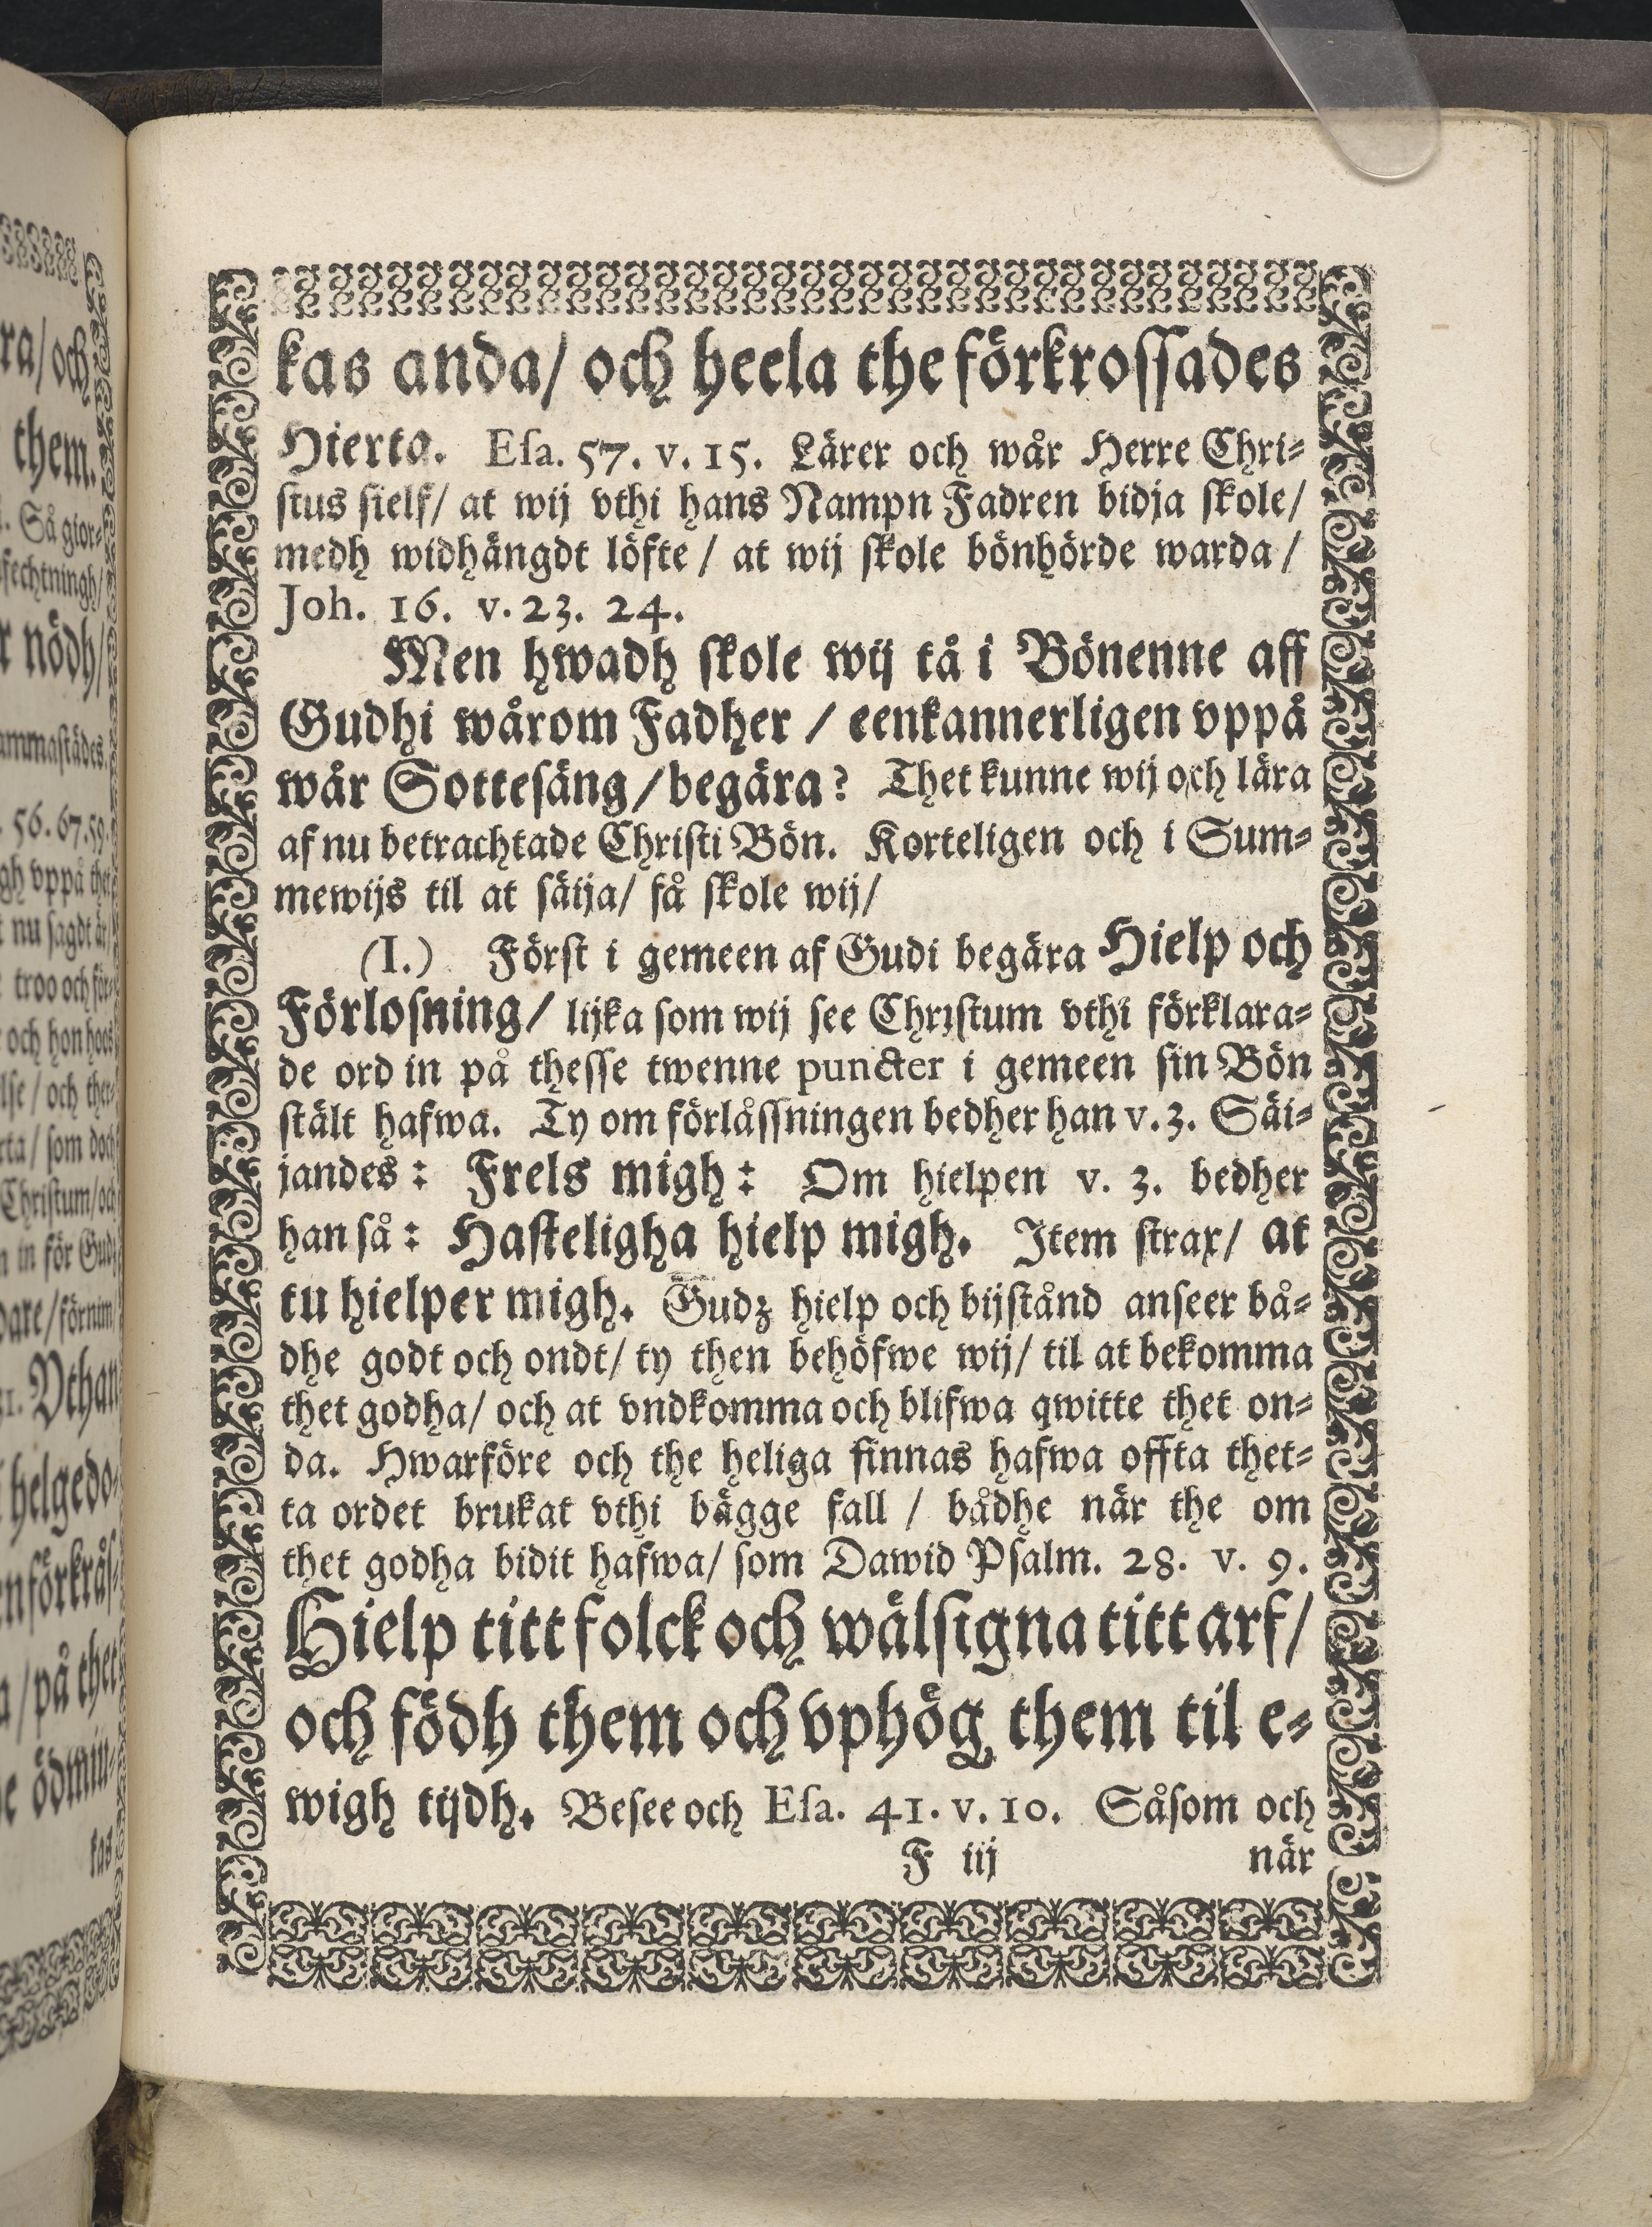 kas anda/ och heela the förkrossades
Hierta. Esa. 57. v. 15. Lärer och wår Herre Chri-
stus sielf/ at wij vthi hans Nampn Fadren bidja skole/
medh widhängdt löfte / at wij skole bönhörde warda /
Joh. 16. v. 23. 24.
Men hwadh skole wij tå i Bönenne aff
Gudhi wårom Fadher / eenkannerligen vppå
wår Sottesäng / begära? Thet kunne wij och lära
af nu betrachtade Christi Bön. Korteligen och i Sum-
mewijs til at säija/ få skole wij/
(I.) Först i gemeen af Gudi begära Hielp och
Förlosning/ lijka som wij see Christum vthi förklara-
de ord in på thesse twenne puncter i gemeen sin Bön
stält hafwa. Ty om förlåssningen bedher han v. 3. Säi-
jandes: Frels migh: Om hielpen v. 3. bedher
han så: Hasteligha hielp migh. Item strax/ at
tu hielper migh. Gudz hielp och bijstånd anseer bå-
dhe godt och ondt/ ty then behöfwe wij/ til at bekomma
thet godha/ och at vndkomma och blifwa qwitte thet on-
da. Hwarföre och the heliga finnas hafwa offta thet-
ta ordet brukat vthi bägge fall / bådhe när the om
thet godha bidit hafwa/ som Dawid Psalm. 28. v. 9.
Hielp titt folck och wälsigna titt arf/
och födh them och vphög them til e-
wigh tijdh. Besee och Esa. 41. v. 10. Såsom och
F iij när
ra/ och
them.
Så gior-
fechtningh/
nödh/
ammastädes.
56. 67. 59.
gh vppå thet
nu sagdt är/
troo och för-
och hon hoes
lse / och ther-
rta/ som doch
Christum/ och
in för Gudz
dare/ förnim
Vthan
helgedo-
enförkrås-
a / på thet
ödmiu-
kas